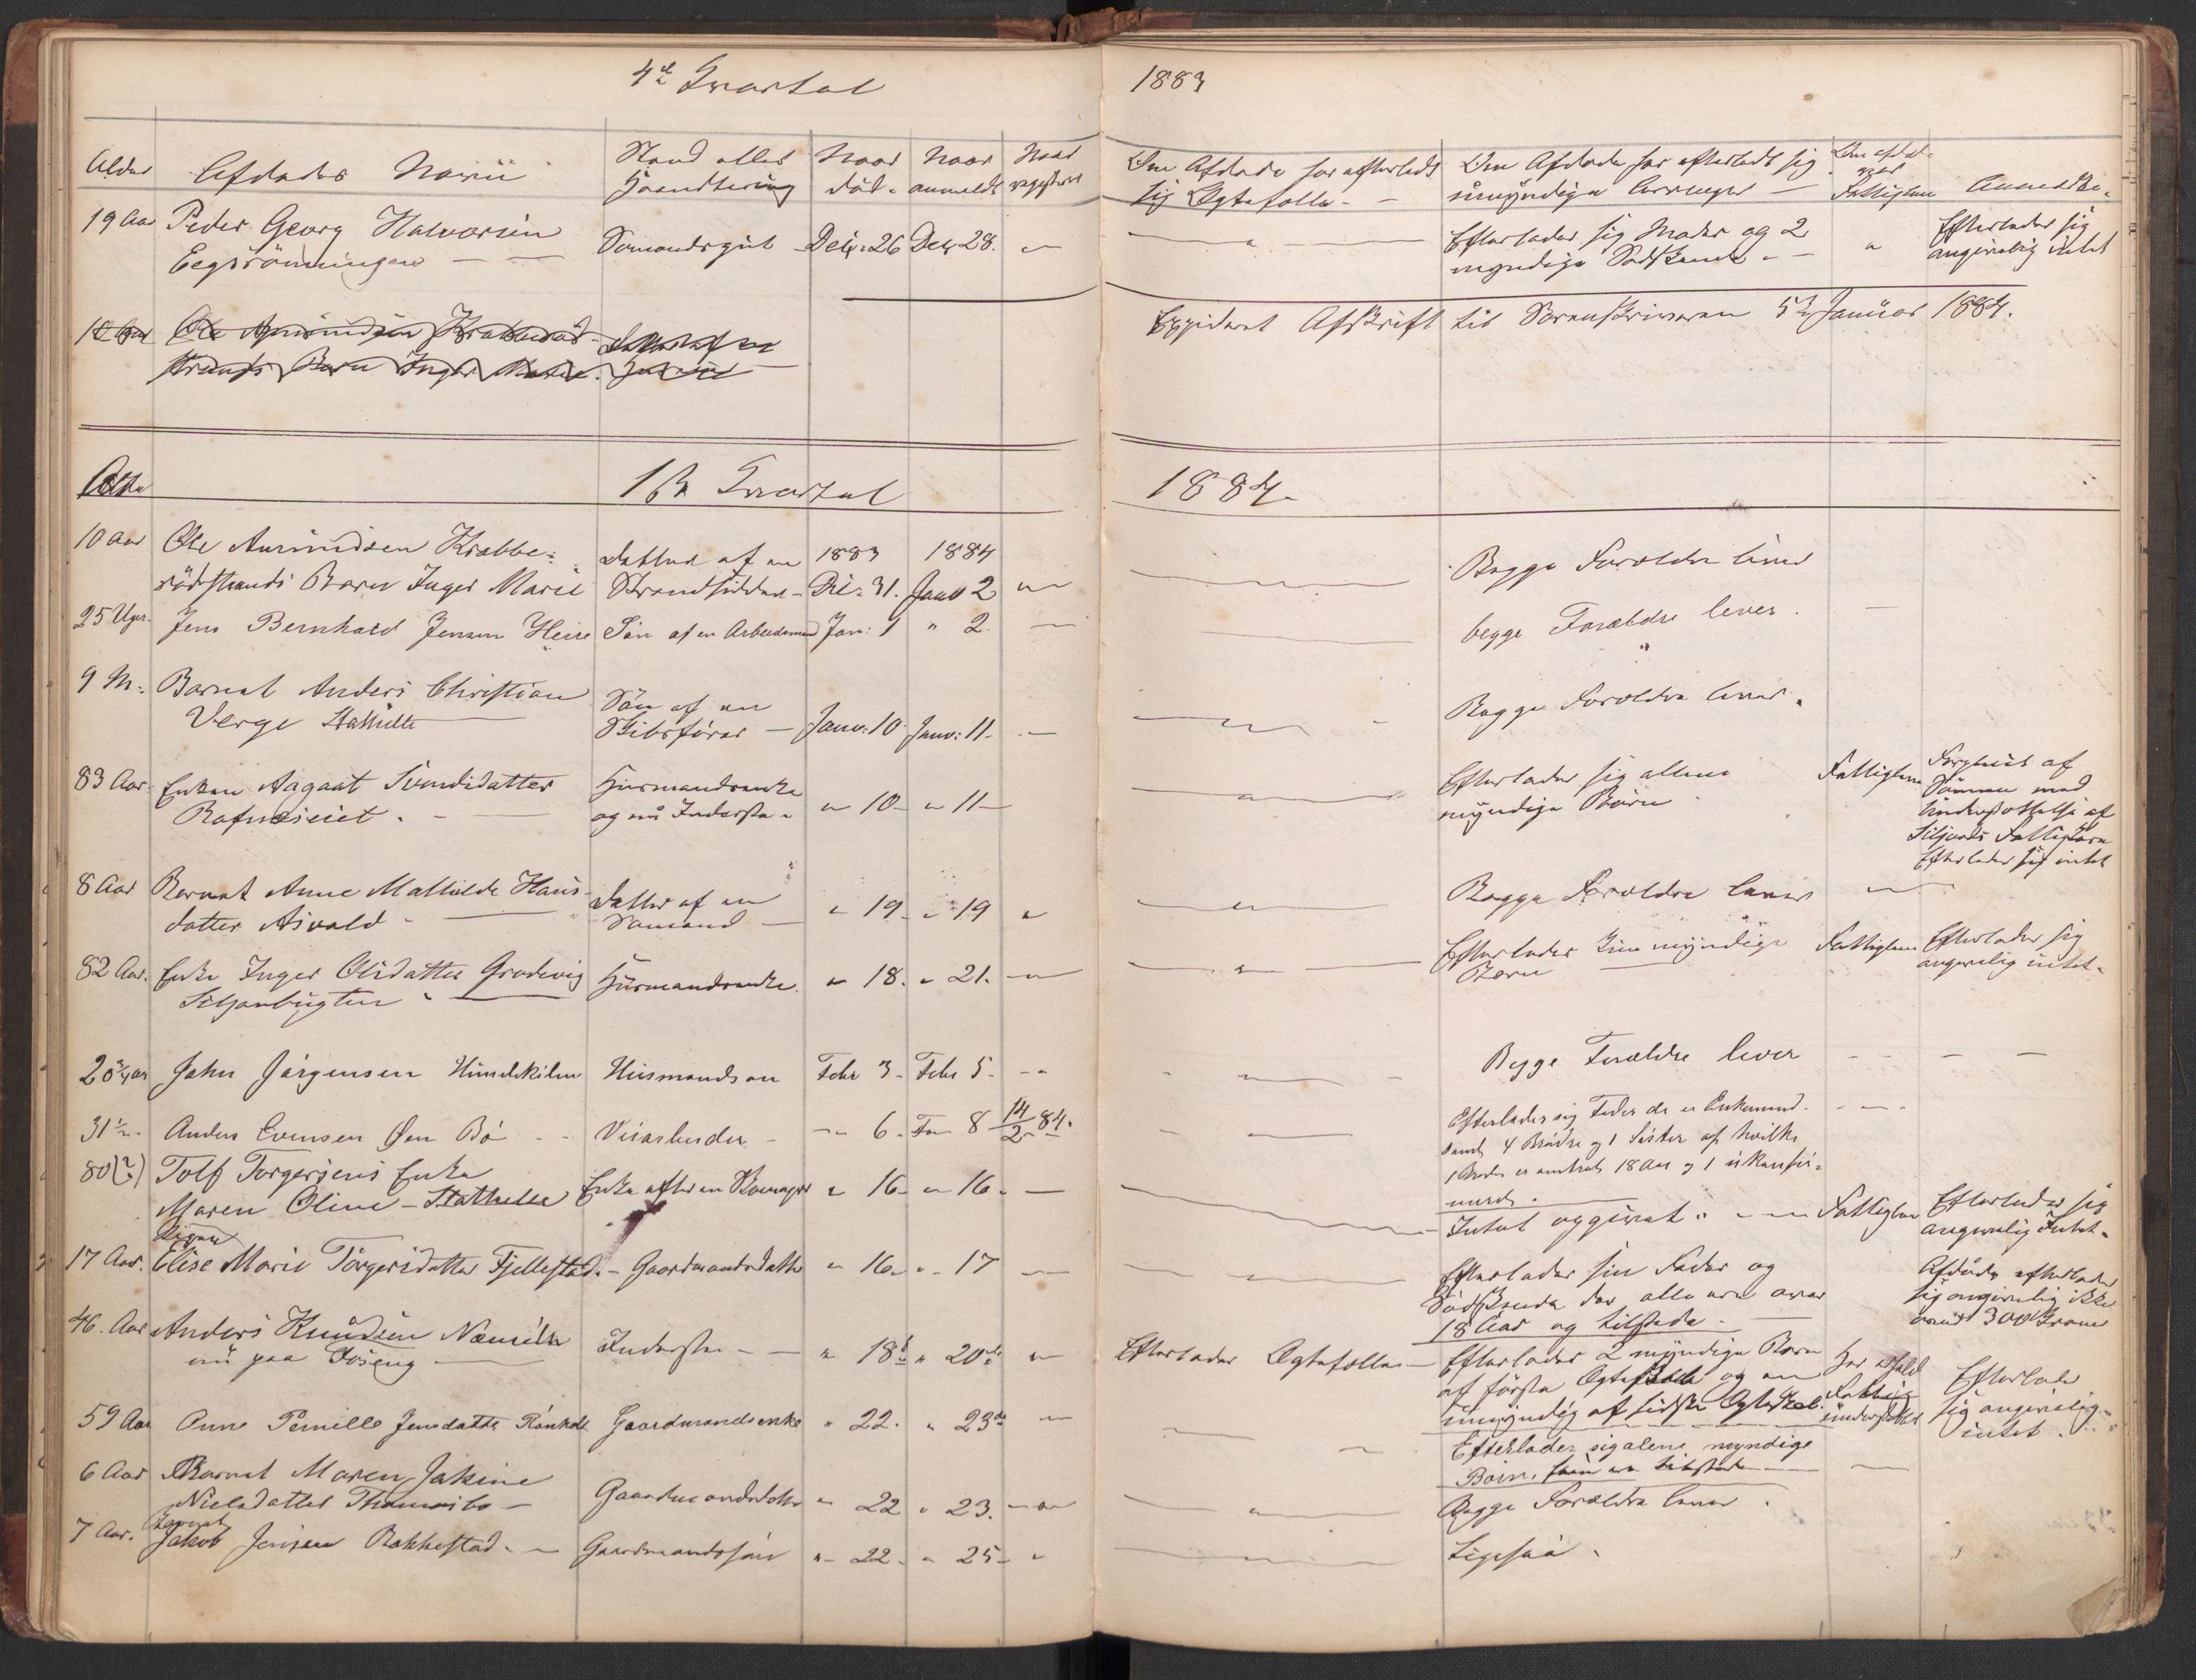 4de Qvartal 1883
Alder Afdødes Navn Stand eller Haandtering Naar død. Naar anmeldt Naar registreret Om Afdøde har efterladt sig Ægtefælle - Om Afdøde har efterladt sig umyndige Arvinger - Om afdøde var Fattiglem Anmærkn.
19 Aar Peder Georg Halvorsen Sømandsgut Decbr. 26 Decbr 28. " Efterlader sig Moder og 2 " Efterlader sig
Eegsrönningen myndige Sødskende - angivelig intet
10 Aar Ole Amundsen Krabberød- Datter af en
strands Barn Inger Marie.
Expideret Afskrift til Sorenskriveren 5te Januar 1884.
1ste Qvartal 1884.
10 Aar Ole Amundsen Krabbe= Datter af en 1883 1884 Begge Forældre lever
rødstrands Barn Inger Marie Strandsidder - Dec. 31. Janv 2 "
25 Uger. Jens Bernhard Jensen Heire Søn af en Arbeidsmand Jan: 1 " 2. begge Forældre lever.
9 M: Barnet Anders Christian Søn af en Begge Forældre lever.
Verge Stathelle Skibsfører - Janv: 10 Janv: 11 -
83 Aar. Enken Aagaat Svendsdatter Husmandsenke Efterlader sig allene Fattiglem Forsørget af
og nu Inderste " " 10 - " 11 - myndige Børn Sønnen med
Understøttelse af
Siljords Fattigkasse
Efterlader sig intet
8 Aar Barnet Anne Mathilde Hans- Datter af en Begge Forældre lever
datter Asvald - Sømand - " 19 - " 19 "
82 Aar. Enke Inger Olsdatter Grødevig Husmandsenke. " 18. " 21. Efterlader kun myndige Fattiglem Efterlader sig
Siljanbugten Børn angivelig intet.
2 3/4 aar John Jörgensen Hundekilen Husmandsøn Febr 3 - Febr 5 - Begge Forældre lever
31 1/2. Anders Evensen Øen Bö Veiarbeider - 6. 8 14/2 84. Efterlader sig Fader der er Enkemand.
samt 4 Brödre og 1 Söster af hvilke
1 Broder er omtrent 18 Aar og 1 ukonfir=
meret.
80 (?) Tolf Torgersens Enke
Maren Oline - Stathelle Enke efter en Skomager " 16 - " 16. Intet opgivet. Fattiglem Efterlader sig
angivelig Intet.
Pigen
17 Aar. Elise Marie Torgersdatter Fjellestad. - Gaardmandsdatter " 16 - " 17 Efterlader sin Fader og Afdøde efterlader
Sødskende der alle ere over sig angivelig ikke
18 Aar og tilstede. - over 300 Kroner
46. Aar Anders Knudsen Inderste - " 18de " 20de " Efterlader Ægtefælle - Efterlader 2 myndige Børn Efterlader
nu paa af første Ægteskab og en sig angivelig
umyndig af sidste Ægteskab. understøttet intet.
59 Aar Anne Pernille Jensdatter Rönholt Gaardmandsenke " 22. " 23de Efterlader sig alene myndige
Börn. som ere tilstede
6 Aar Barnet Maren Jakine
Nielsdatter Gaardmandsdatter " 22 " 23. Begge Forældre lever.
Barnet
7 Aar. Jakob Jensen Rakkestad. - Gaardmandssön " 22 - " 25 - " Ligesaa.